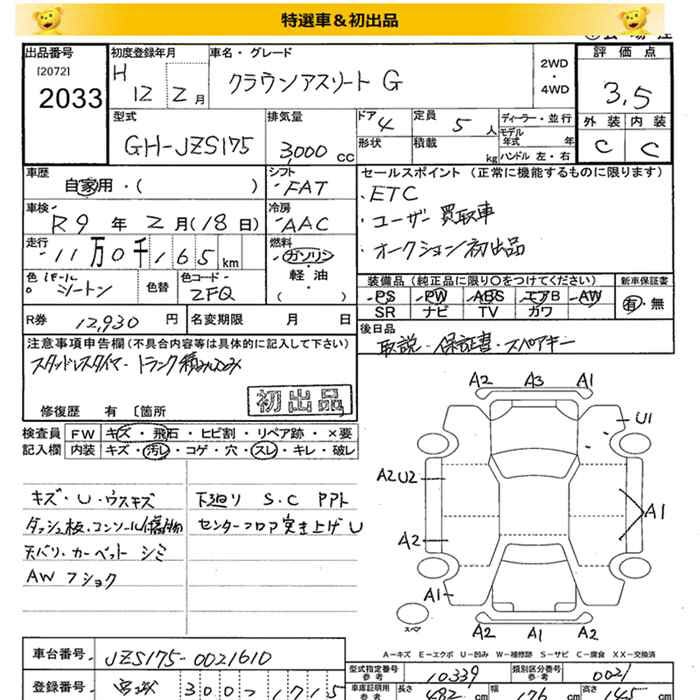 特選車＆初出品
出品番号
[2072]
2033
初度登録年月
H 12 2 月
車名・グレード
クラウンアスリート G
2WD
・
4WD
評価点
3.5
外装 内装
C C
型式
GH-JZS175
排気量
3,000 cc
ドア 4
形状
定員 5 人
積載 kg
ディーラー・並行
モデル年式 年
ハンドル 左・右
車歴
自家用・( )
シフト
FAT
セールスポイント (正常に機能するものに限ります)
・ETC
・ユーザー買取車
・オークション初出品
車検
R9 年 2 月 (18 日)
冷房
AAC
走行
11万0千165 km
燃料
ガソリン
軽・油
( )
色
シートン
色替
色コード
2FQ
装備品 (純正品に限り○をつけてください)
PS PW ABS エアB AW
SR ナビ TV ガワ
新車保証書
有・無
R券 12,930 円
名変期限 月 日
後日品
取説・保証書・スペアキー
注意事項申告欄 (不具合内容等は具体的に記入して下さい)
スタッドレスタイヤ・トランク積みこみ
修復歴 有 〔箇所
初出品
検査員 FW キズ・飛石・ヒビ割・リペア跡・×要
記入欄 内装 キズ・汚レ・コゲ・穴・スレ・キレ・破レ
キズ・U・ウスキズ
ダッシュ板・コンソール
天バリ・カーペット シミ
AW フショク
下廻り S.C PPト
センターフロア突き上げ U
A2 A3 A1
U1
A2U2
A1
A2
A1
スペア
A2 A1 A2
A-キズ E-エクボ U-凹み W-補修跡 S-サビ C-腐食 XX-交換済
車台番号
JZS175-0021610
型式指定番号
参考
10339
類別区分番号
参考
0021
登録番号
宮城 300 1715
車庫証明用
参考
長さ 482 cm
幅 176 cm
高さ 145 cm